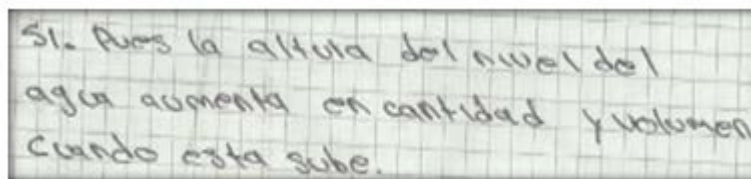 SI. Pues la altura del nivel del
agua aumenta en cantidad y volumen
cuando esta sube.